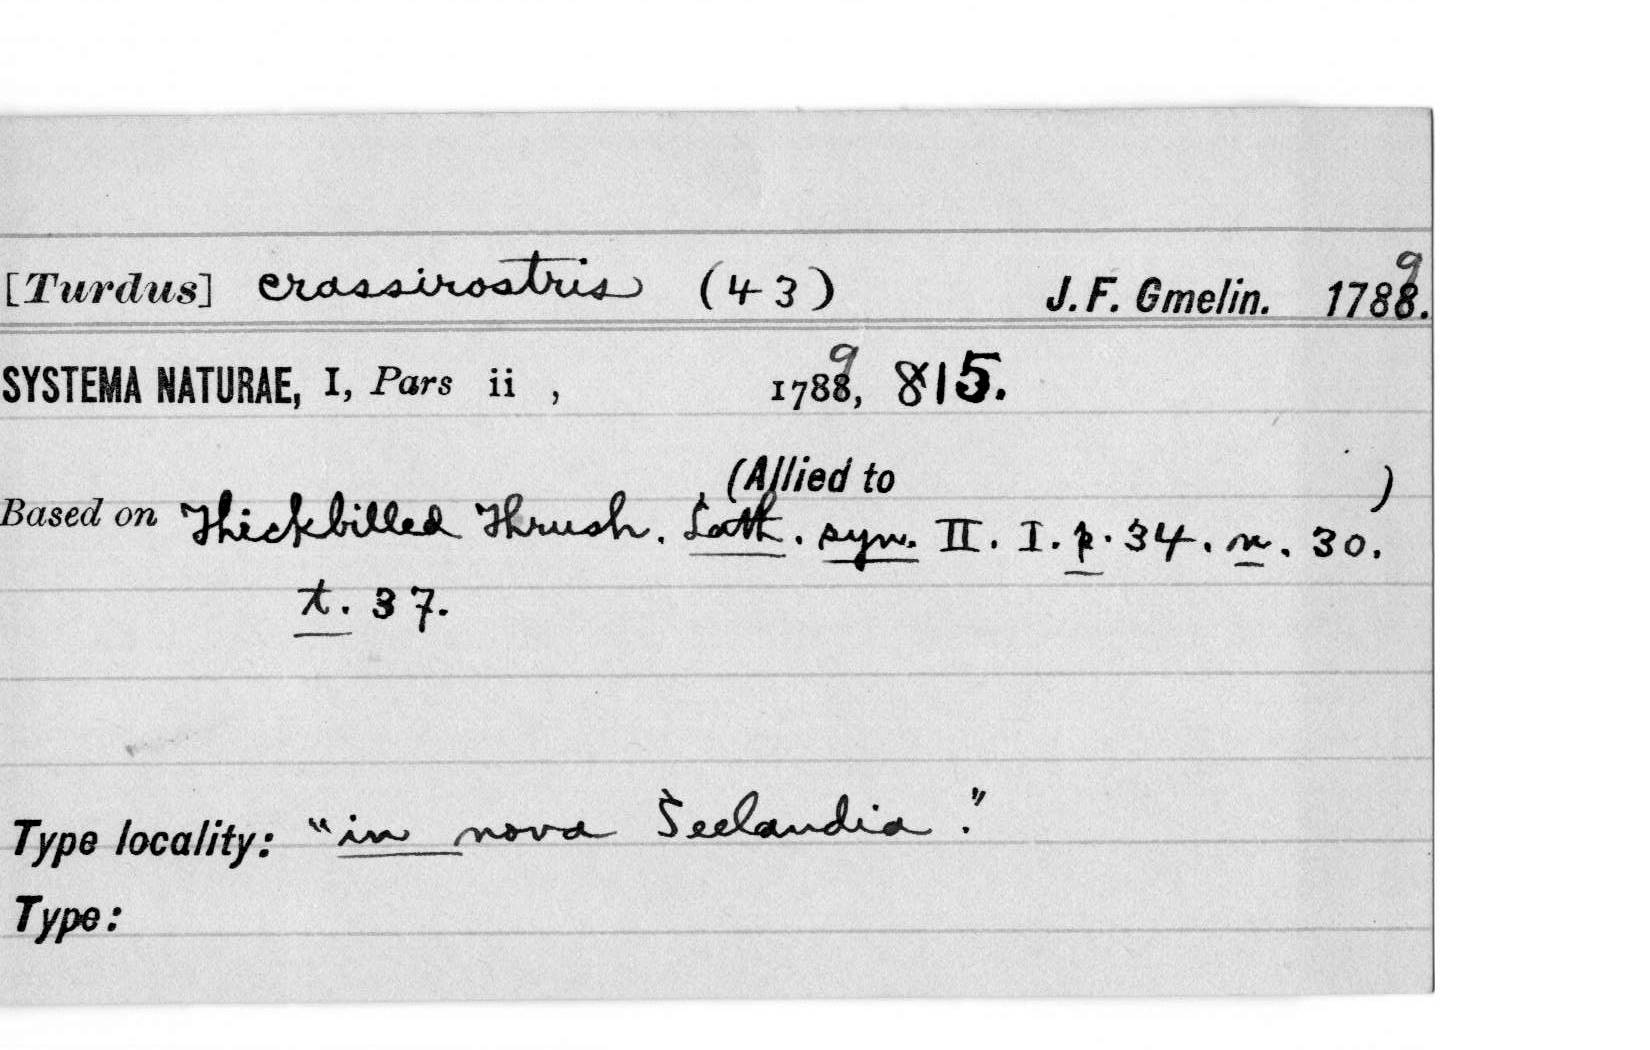 [Turdus] crassirostris (43) J. F. Gmelin. 1789.
SYSTEMA NATURAE, I, Pars ii , 1789, 815.
(Allied to )
Based on Thickbilled Thrush. Lath. syn. II. I. p. 34. n. 30.
t. 37.
Type locality: "in nova Seelandia."
Type: